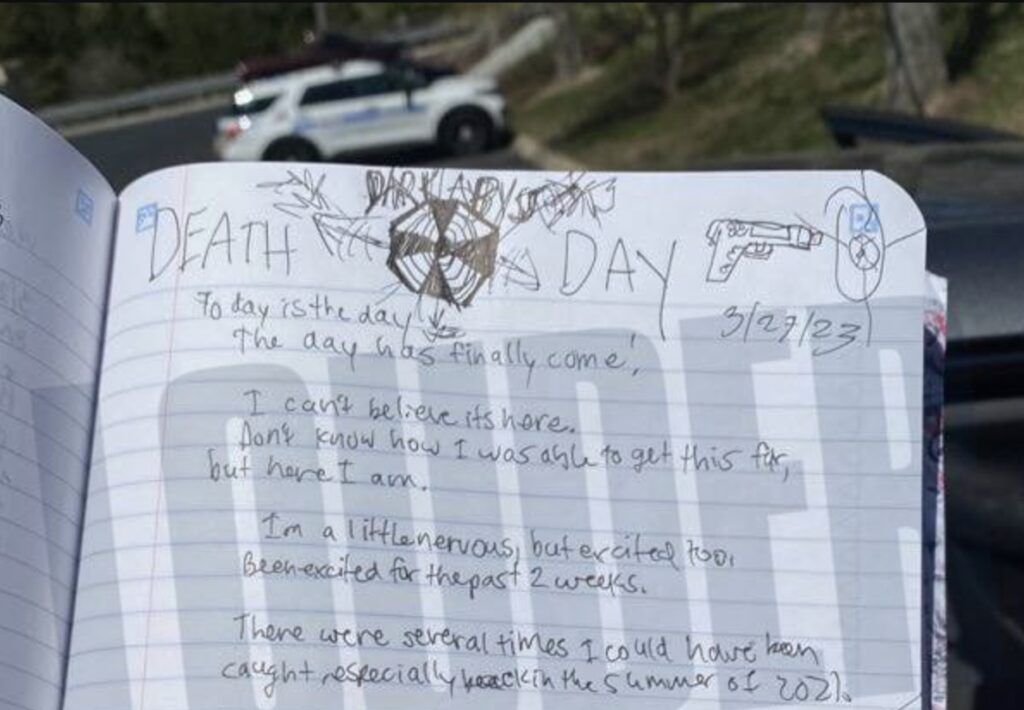 DARK ABYSS
DEATH DAY
3/27/23
To day is the day
The day has finally come!
I can't believe its here.
Dont know how I was able to get this far,
but here I am.
Im a little nervous, but excited too.
Been excited for the past 2 weeks.
There were several times I could have been
caught, especially back in the summer of 2021.